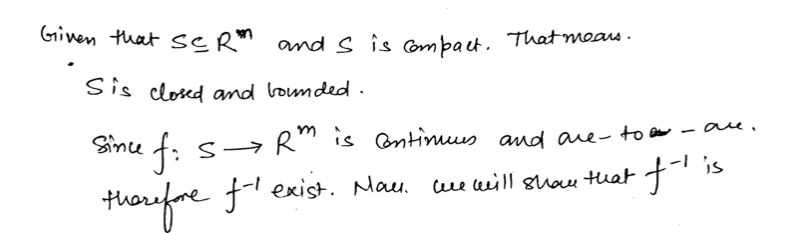 Given that S ⊆ R^m and S is compact. That means.
S is closed and bounded.
Since f: S → R^m is continues and one-to-one.
therefore f^-1 exist. Now. we will show that f^-1 is